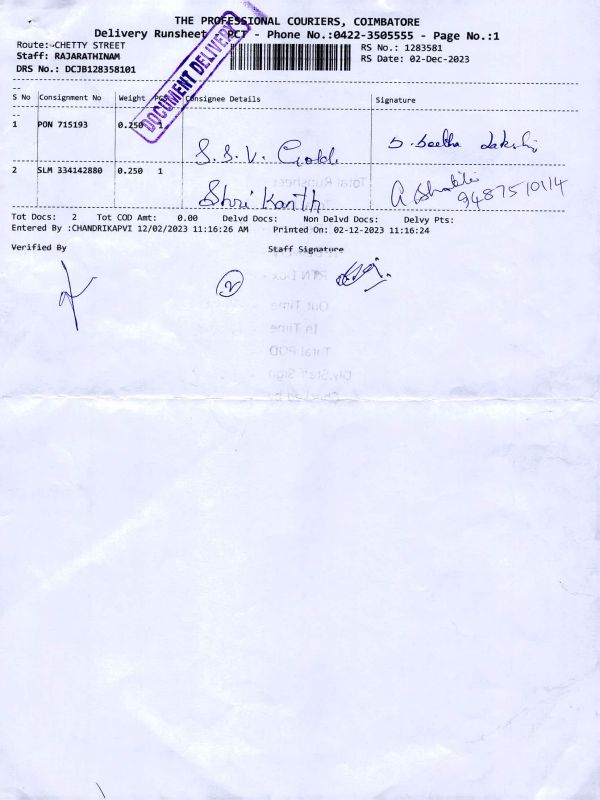 THE PROFESSIONAL COURIERS, COIMBATORE
Delivery Runsheet - PCT - Phone No.:0422-3505555 - Page No.:1
Route: CHETTY STREET RS No.: 1283581
Staff: RAJARATHINAM RS Date: 02-Dec-2023
DRS No.: DCJB128358101
DOCUMENT DELIVERY
S No Consignment No Weight PCS Consignee Details Signature
1 PON 715193 0.250 1
S.S.V. Gold
2 SLM 334142880 0.250 1
Shri Kanth 9487510114
Tot Docs: 2 Tot COD Amt: 0.00 Delvd Docs: Non Delvd Docs: Delvy Pts:
Entered By :CHANDRIKAPVI 12/02/2023 11:16:26 AM Printed On: 02-12-2023 11:16:24
Verified By Staff Signature